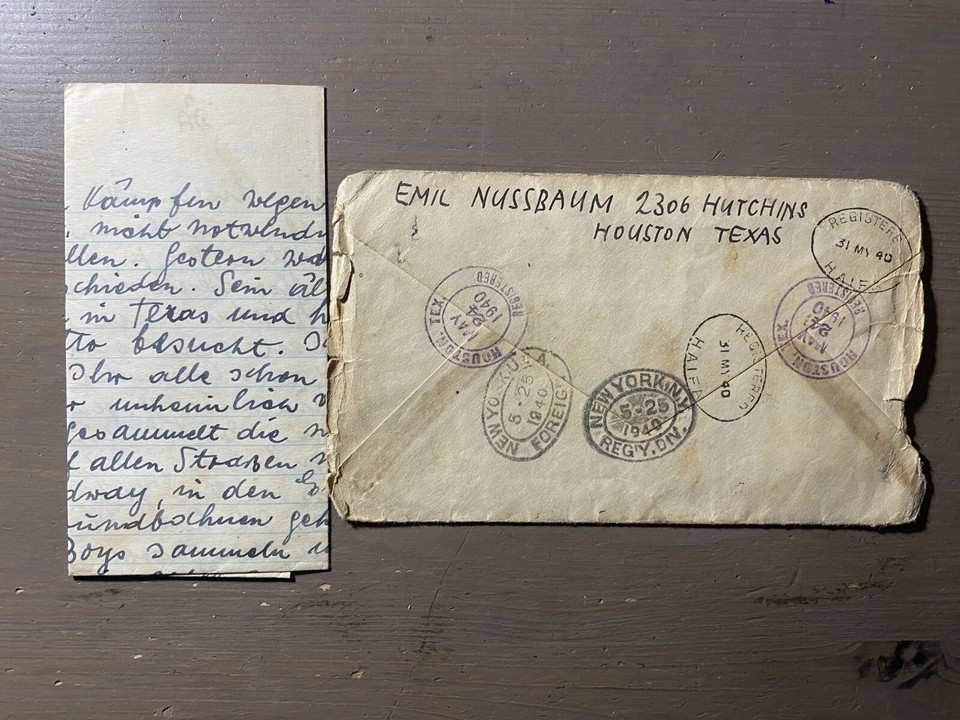 Kämpfen wegen
nicht notwend
llen. Gestern
chieden. Sein äl
in Texas und h
tto besucht.
Ihr alle schon
unheimlich
gesammelt die
f allen Straßen
dway, in den
undbahnen geh
Boys sammeln
EMIL NUSSBAUM 2306 HUTCHINS
HOUSTON TEXAS
REGISTERED
31 MY 40
HAIFA
HOUSTON, TEX.
MAY
24
1940
REGISTERED
NEW YORK, U.S.A.
5-25
1940
FOREIGN
NEW YORK, N.Y.
5-25
1940
REG'Y. DIV.
REGISTERED
31 MY 40
HAIFA
HOUSTON, TEX.
MAY
24
1940
REGISTERED